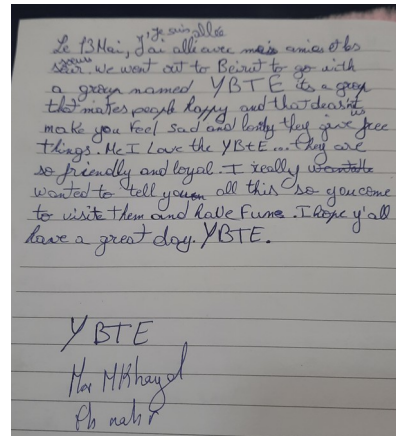 J', je suis allée
Le 13 Mai, J'ai alli avec mais amies et les
soeur. We went out to Beirut to go with
a group named YBTE its a group
that makes people happy and that doesn't
make you feel sad and lonly they give us free
things. Me I Love the YBtE... they are
so friendly and loyal. I really
wanted to tell you all this so you come
to visite them and have Fune. I hope y'all
have a great day. YBTE.
YBTE